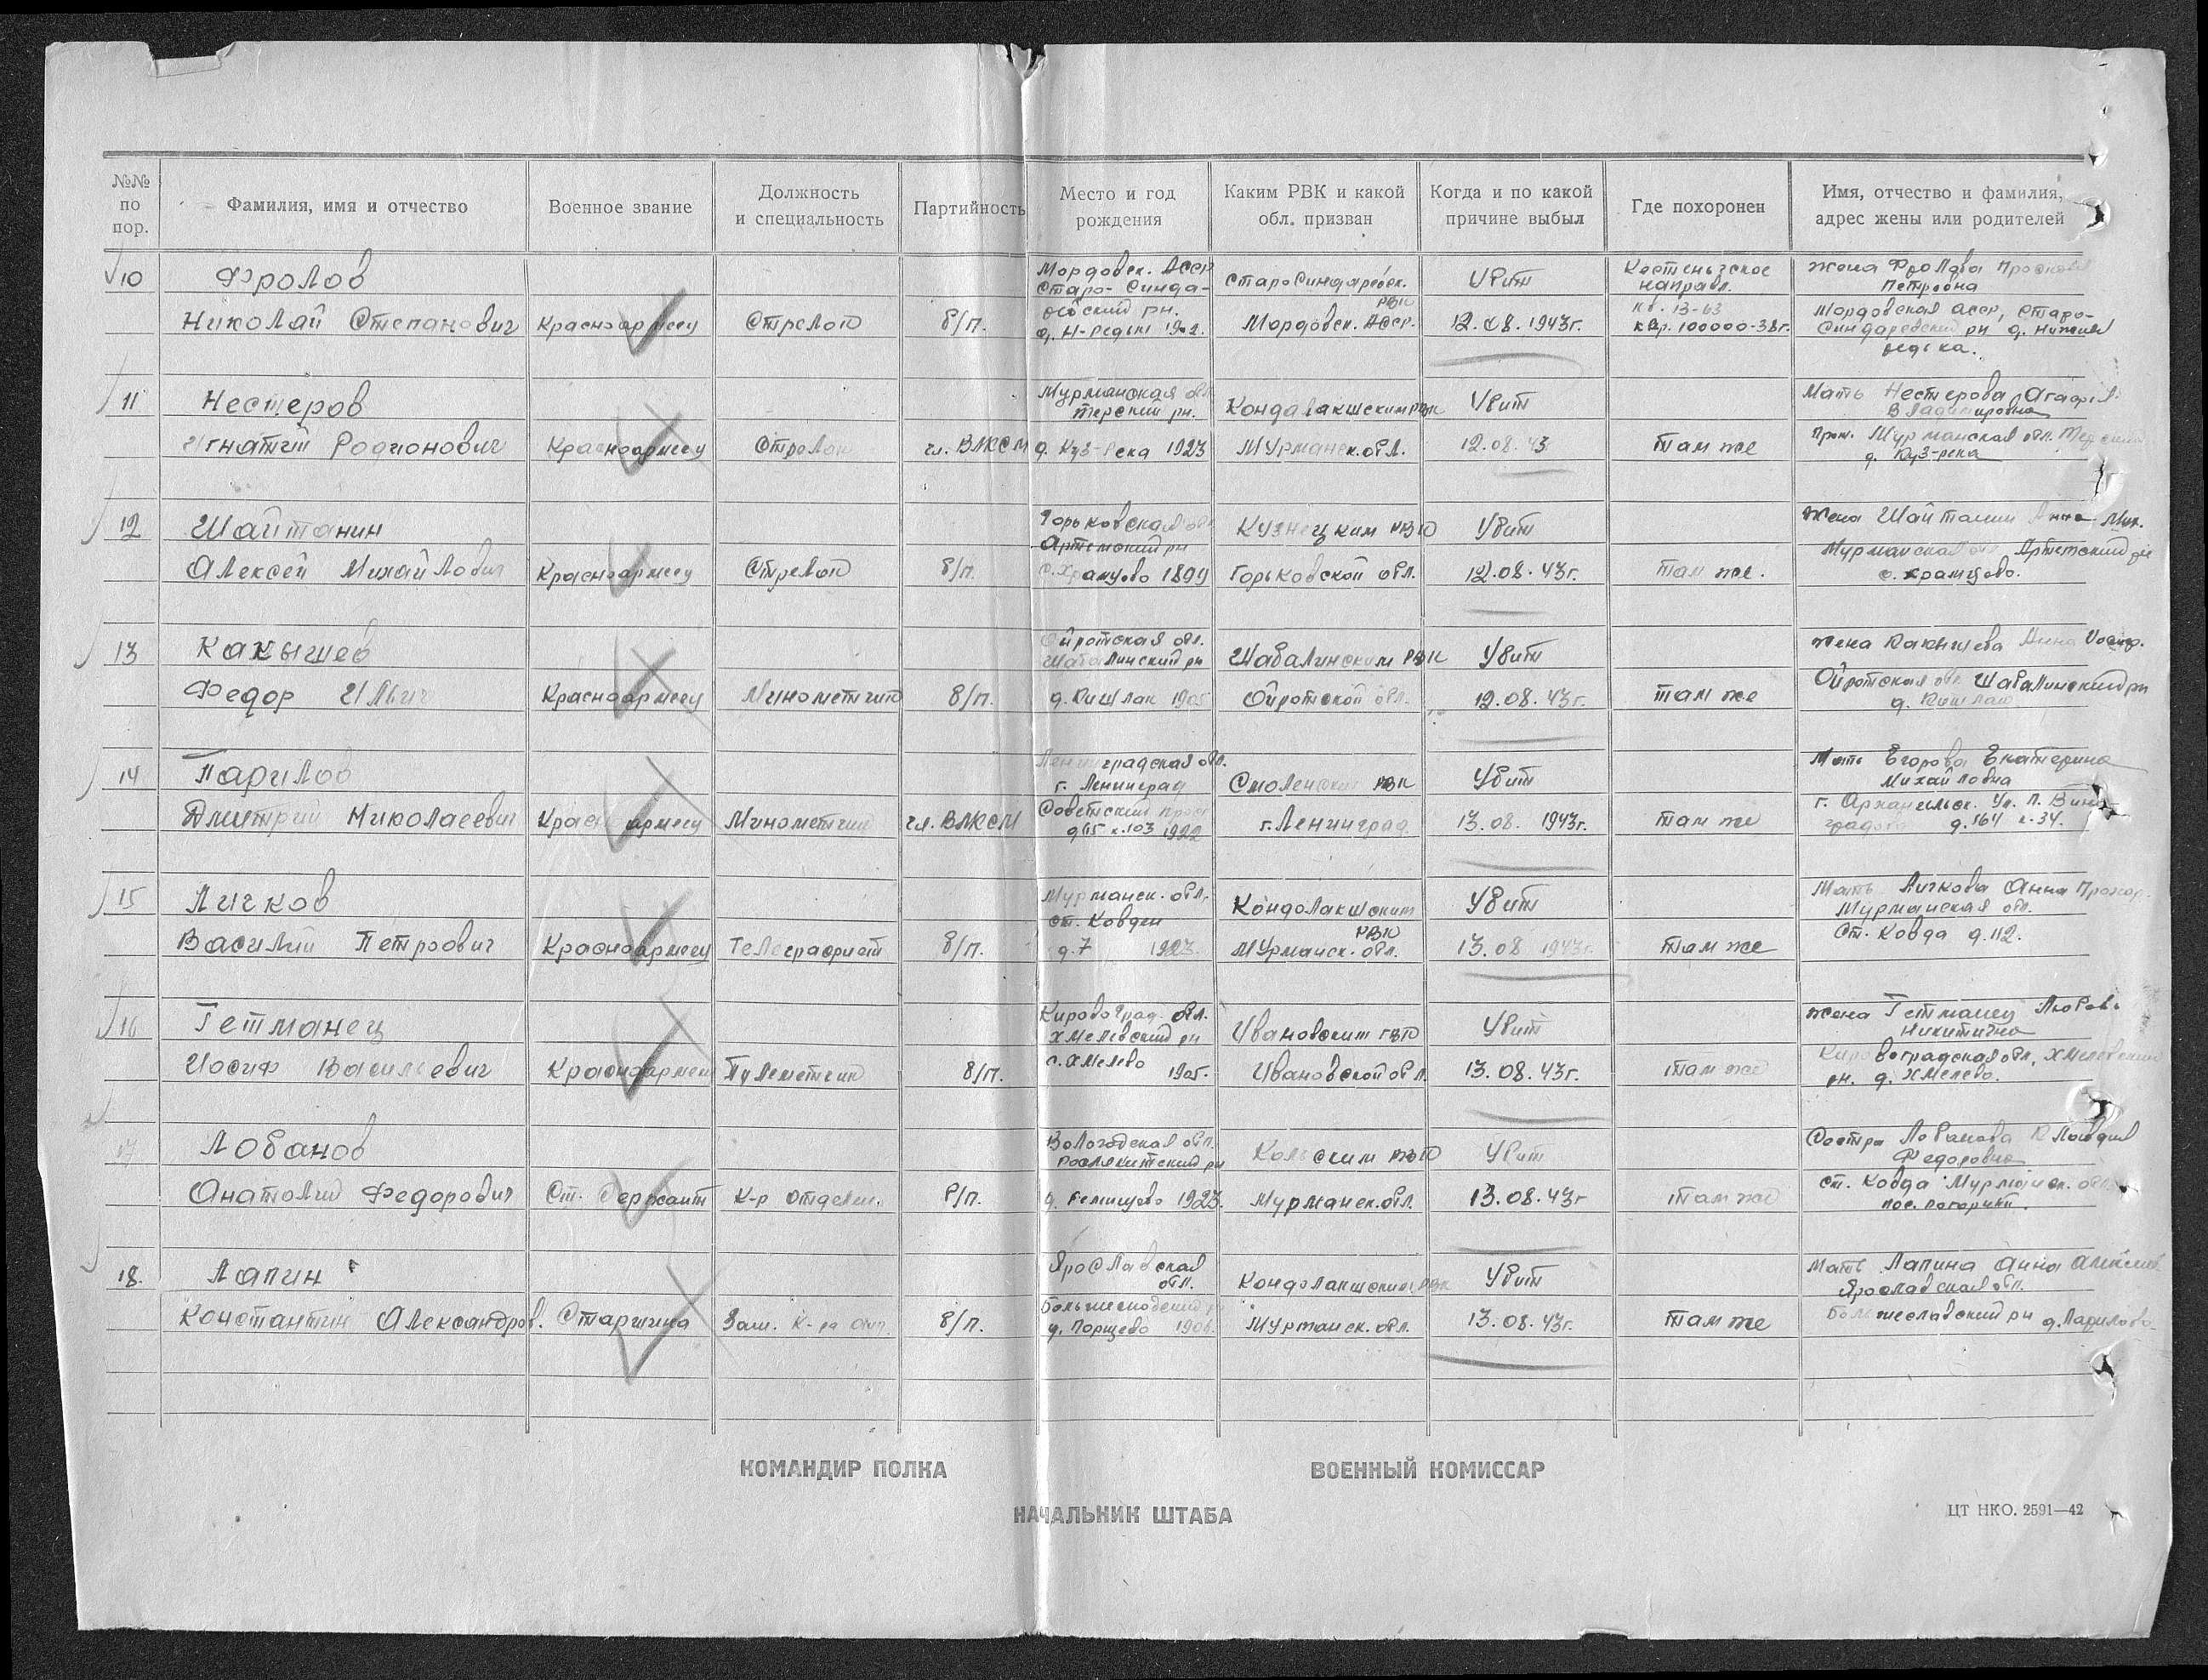 №№ по пор.
Фамилия, имя и отчество
Военное звание
Должность и специальность
Партийность
Место и год рождения
Каким РВК и какой обл. призван
Когда и по какой причине выбыл
Где похоронен
Имя, отчество и фамилия, адрес жены или родителей
10
Фролов
Николай Степанович
Красноармеец
Стрелок
б/п.
Мордовск. АССР
Старо-Синда-
д. Н-Редьки 1902.
СтароСиндаревск. РВК
Мордовск. АССР.
Убит
12.08.1943г.
Кестеньгское
направл.
кв. 13-63
кар. 100000-38г.
Жена Фролова
Петровна
Мордовская АССР, Старо-
Синдаревский рн д. Нижняя
редька.
11
Нестеров
Игнатий Родионович
Красноармеец
Стрелок
чл. ВЛКСМ
Мурманская обл
Терский рн.
д. Куз-река 1923
Кондалакшским РВК
Мурманск. обл.
Убит
12.08.43
там же
Мать Нестерова
Владимировна
Прож. Мурманская обл. Терский
д. Куз-река
12
Шайтанин
Алексей Михайлович
Красноармеец
Стрелок
б/п.
Горьковская обл
Артемский рн
с. Храмцово 1899
Кузнецким РВК
Горьковской обл.
Убит
12.08.43г.
там же.
Жена Шайтанин Анна Мих.
Мурманская обл Артемский рн
с. храмцово.
13
Какышев
Федор Ильич
Красноармеец
Минометчик
б/п.
Ойротская обл.
Шабалинский рн
д. Кишлак 1905
Шабалинским РВК
Ойротской обл.
Убит
12.08.43г.
там же
Жена Какышева Анна
Ойротская обл Шабалинский рн
д. Кишлак
14
Парилов
Дмитрий Николаевич
Красноармеец
Минометчик
чл. ВЛКСМ
Ленинградская обл.
г. Ленинград
Советский просп
д 15 к.103 1922
Смоленским РВК
г. Ленинград
Убит
13.08. 1943г.
там же
Мать Егорова Екатерина
Михайловна
г. Архангельск. Ул. П. Вино-
градова д.164 к.34.
15
Личков
Василий Петрович
Красноармеец
Телеграфист
б/п.
Мурманск. обл.
ст. Ковден
д.7 1923.
Кондолакшским РВК
Мурманск. обл.
Убит
13.08 1943г.
там же
Мать Личкова Анна Прохор.
Мурманская обл.
ст. Ковда д.112.
16
Гетманец
Иосиф Васильевич
Красноармеец
Пулеметчик
б/п.
Кировоград. обл.
Хмелевский рн
с. Хмелево 1905.
Ивановским РВК
Ивановской обл.
Убит
13.08.43г.
там же
Жена Гетманец Любовь
Никитична
Кировоградская обл, Хмелевский
рн. д. Хмелево.
17
Лобанов
Анатолий Федорович
Ст. Сержант
К-р отделен.
б/п.
Вологодская обл.
Рослятитский рн
1923.
Кольским РВК
Мурманск. обл.
Убит
13.08.43г
там же
Сестра Лобанова Клавдия
Федоровна
ст. Ковда Мурманск. обл.
18.
Лапин
Константин Александров.
Старшина
Зам. К-ра
б/п.
Ярославская
обл.
д. Порщево 1906.
Кондолакшским РВК
Мурманск. обл.
Убит
13.08.43г.
там же
Мать Лапина Анна Алексеев.
Ярославская обл.
Большеславский рн д. Парилово.
КОМАНДИР ПОЛКА
ВОЕННЫЙ КОМИССАР
НАЧАЛЬНИК ШТАБА
ЦТ НКО. 2591—42